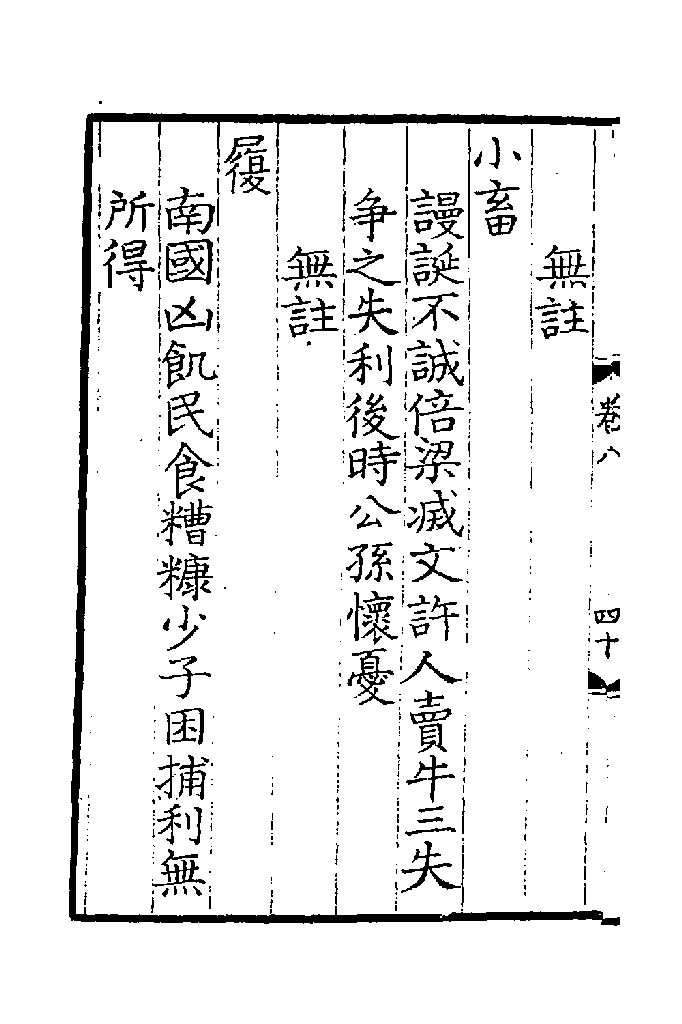 卷八
四十
無註
小畜
謾誕不誠倍梁滅文許人賣牛三失
争之失利後時公孫懷憂
無註
履
南國凶飢民食糟糠少子困捕利無
所得